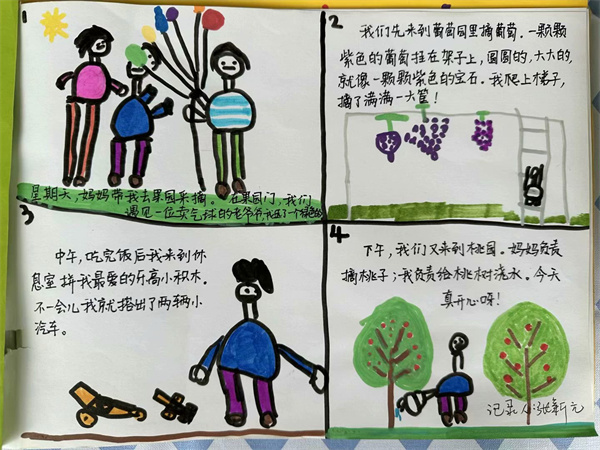 1
星期天,妈妈带我去果园采摘。在果园门,我们
遇见一位卖气球的老爷爷,我选了一个绿色的
2
我们先来到葡萄园里摘葡萄.一颗颗
紫色的葡萄挂在架子上,圆圆的,大大的,
就像一颗颗紫色的宝石.我爬上梯子,
摘了满满一大筐!
3
中午,吃完饭后我来到休
息室拼我最爱的乐高小积木.
不一会儿我就搭出了两辆小
汽车。
4
下午,我们又来到桃园.妈妈负责
摘桃子;我负责给桃树浇水.今天
真开心呀!
记录人:张新元